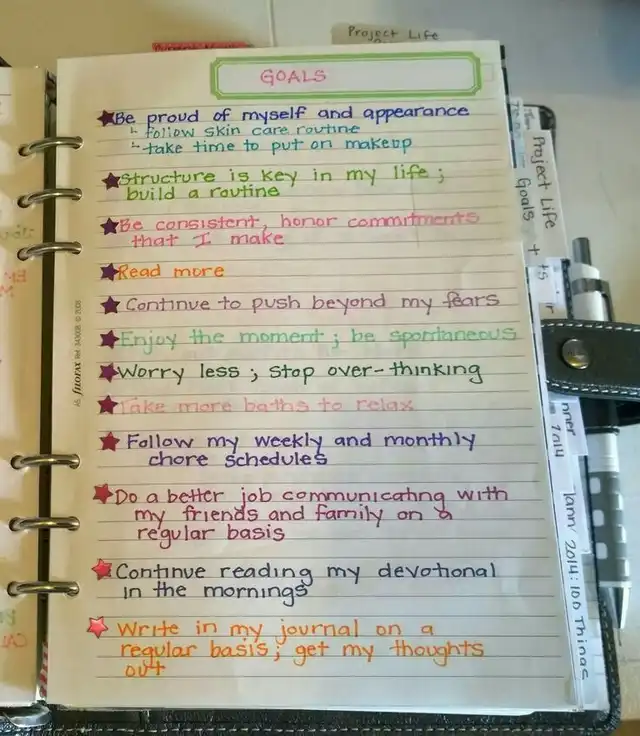 Project Life
GOALS
Be proud of myself and appearance
follow skin care routine
take time to put on makeup
Structure is key in my life ;
build a routine
Be consistent, honor commitments
that I make
Read more
Continue to push beyond my fears
Enjoy the moment ; be spontaneous
Worry less ; stop over-thinking
Take more baths to relax
Follow my weekly and monthly
chore schedules
Do a better job communicating with
my friends and family on a
regular basis
Continue reading my devotional
in the mornings
Write in my journal on a
regular basis; get my thoughts
out
filofax Ref 343008 © 2008
Project Life
Goals
2014
2014: 100 Things